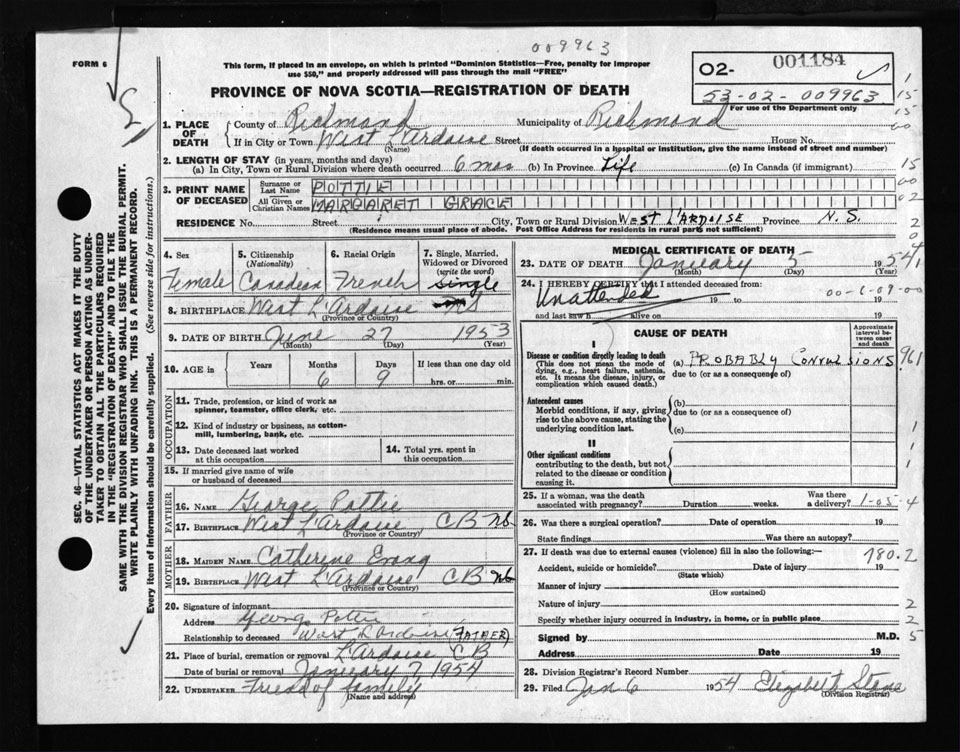 009963
FORM 6
This form, if placed in an envelope, on which is printed "Dominion Statistics—Free, penalty for improper
use $50," and properly addressed will pass through the mail "FREE"
PROVINCE OF NOVA SCOTIA—REGISTRATION OF DEATH
O2- 001184
53-02-009963
For use of the Department only
1. PLACE OF DEATH County of Richmond Municipality of Richmond
If in City or Town West L'Ardoise Street House No.
(Name) (If death occurred in a hospital or institution, give the name instead of street and number)
2. LENGTH OF STAY (in years, months and days)
(a) In City, Town or Rural Division where death occurred 6 mos (b) In Province Life (c) In Canada (if immigrant)
3. PRINT NAME OF DECEASED Surname or Last Name POTTIE
All Given or Christian Names MARGARET GRACE
RESIDENCE No. Street City, Town or Rural Division WEST L'ARDOISE Province N.S.
(Residence means usual place of abode. Post Office Address for residents in rural parts not sufficient)
4. Sex Female
5. Citizenship (Nationality) Canadian
6. Racial Origin French
7. Single, Married, Widowed or Divorced (write the word) Single
8. BIRTHPLACE West L'Ardoise NS
(Province or Country)
9. DATE OF BIRTH June 27 1953
(Month) (Day) (Year)
10. AGE in Years Months 6 Days 9 If less than one day old hrs. or min.
OCCUPATION
11. Trade, profession, or kind of work as spinner, teamster, office clerk, etc.
12. Kind of industry or business, as cotton-mill, lumbering, bank, etc.
13. Date deceased last worked at this occupation
14. Total yrs. spent in this occupation
15. If married give name of wife or husband of deceased
FATHER
16. NAME George Pottie
17. BIRTHPLACE West L'Ardoise C B
(Province or Country)
MOTHER
18. MAIDEN NAME Catherine
19. BIRTHPLACE West L'Ardoise C B
(Province or Country)
20. Signature of informant George Pottie
Address West L'Ardoise
Relationship to deceased (FATHER)
21. Place of burial, cremation or removal L'Ardoise C B
Date of burial or removal January 7, 1954
22. UNDERTAKER Friend of family
(Name and address)
MEDICAL CERTIFICATE OF DEATH
23. DATE OF DEATH January 5 1954
(Month) (Day) (Year)
24. I HEREBY CERTIFY that I attended deceased from:
Unattended 19 to 19
and last saw h alive on 19
CAUSE OF DEATH
Approximate interval between onset and death
I
Disease or condition directly leading to death (a) PROBABLY CONVULSIONS 961
(This does not mean the mode of dying, e.g., heart failure, asthenia, etc. It means the disease, injury, or complication which caused death.)
due to (or as a consequence of)
Antecedent causes
Morbid conditions, if any, giving rise to the above cause, stating the underlying condition last.
(b)
due to (or as a consequence of)
(c)
II
Other significant conditions
contributing to the death, but not related to the disease or condition causing it.
25. If a woman, was the death associated with pregnancy? Duration weeks. Was there a delivery? 1-05-4
26. Was there a surgical operation? Date of operation 19
State findings Was there an autopsy?
27. If death was due to external causes (violence) fill in also the following:— 780.2
Accident, suicide or homicide? Date of injury 19
(State which)
Manner of injury
(How sustained)
Nature of injury
Specify whether injury occurred in industry, in home, or in public place
Signed by M.D.
Address Date 19
28. Division Registrar's Record Number
29. Filed Jan 6 1954 Elizabeth Stone
(Division Registrar)
SEC. 46—VITAL STATISTICS ACT MAKES IT THE DUTY
OF THE UNDERTAKER OR PERSON ACTING AS UNDER-
TAKER TO OBTAIN ALL THE PARTICULARS REQUIRED
IN THE "REGISTRATION OF DEATH" AND TO FILE THE
SAME WITH THE DIVISION REGISTRAR WHO SHALL ISSUE THE BURIAL PERMIT.
WRITE PLAINLY WITH UNFADING INK. THIS IS A PERMANENT RECORD.
Every item of information should be carefully supplied. (See reverse side for instructions.)